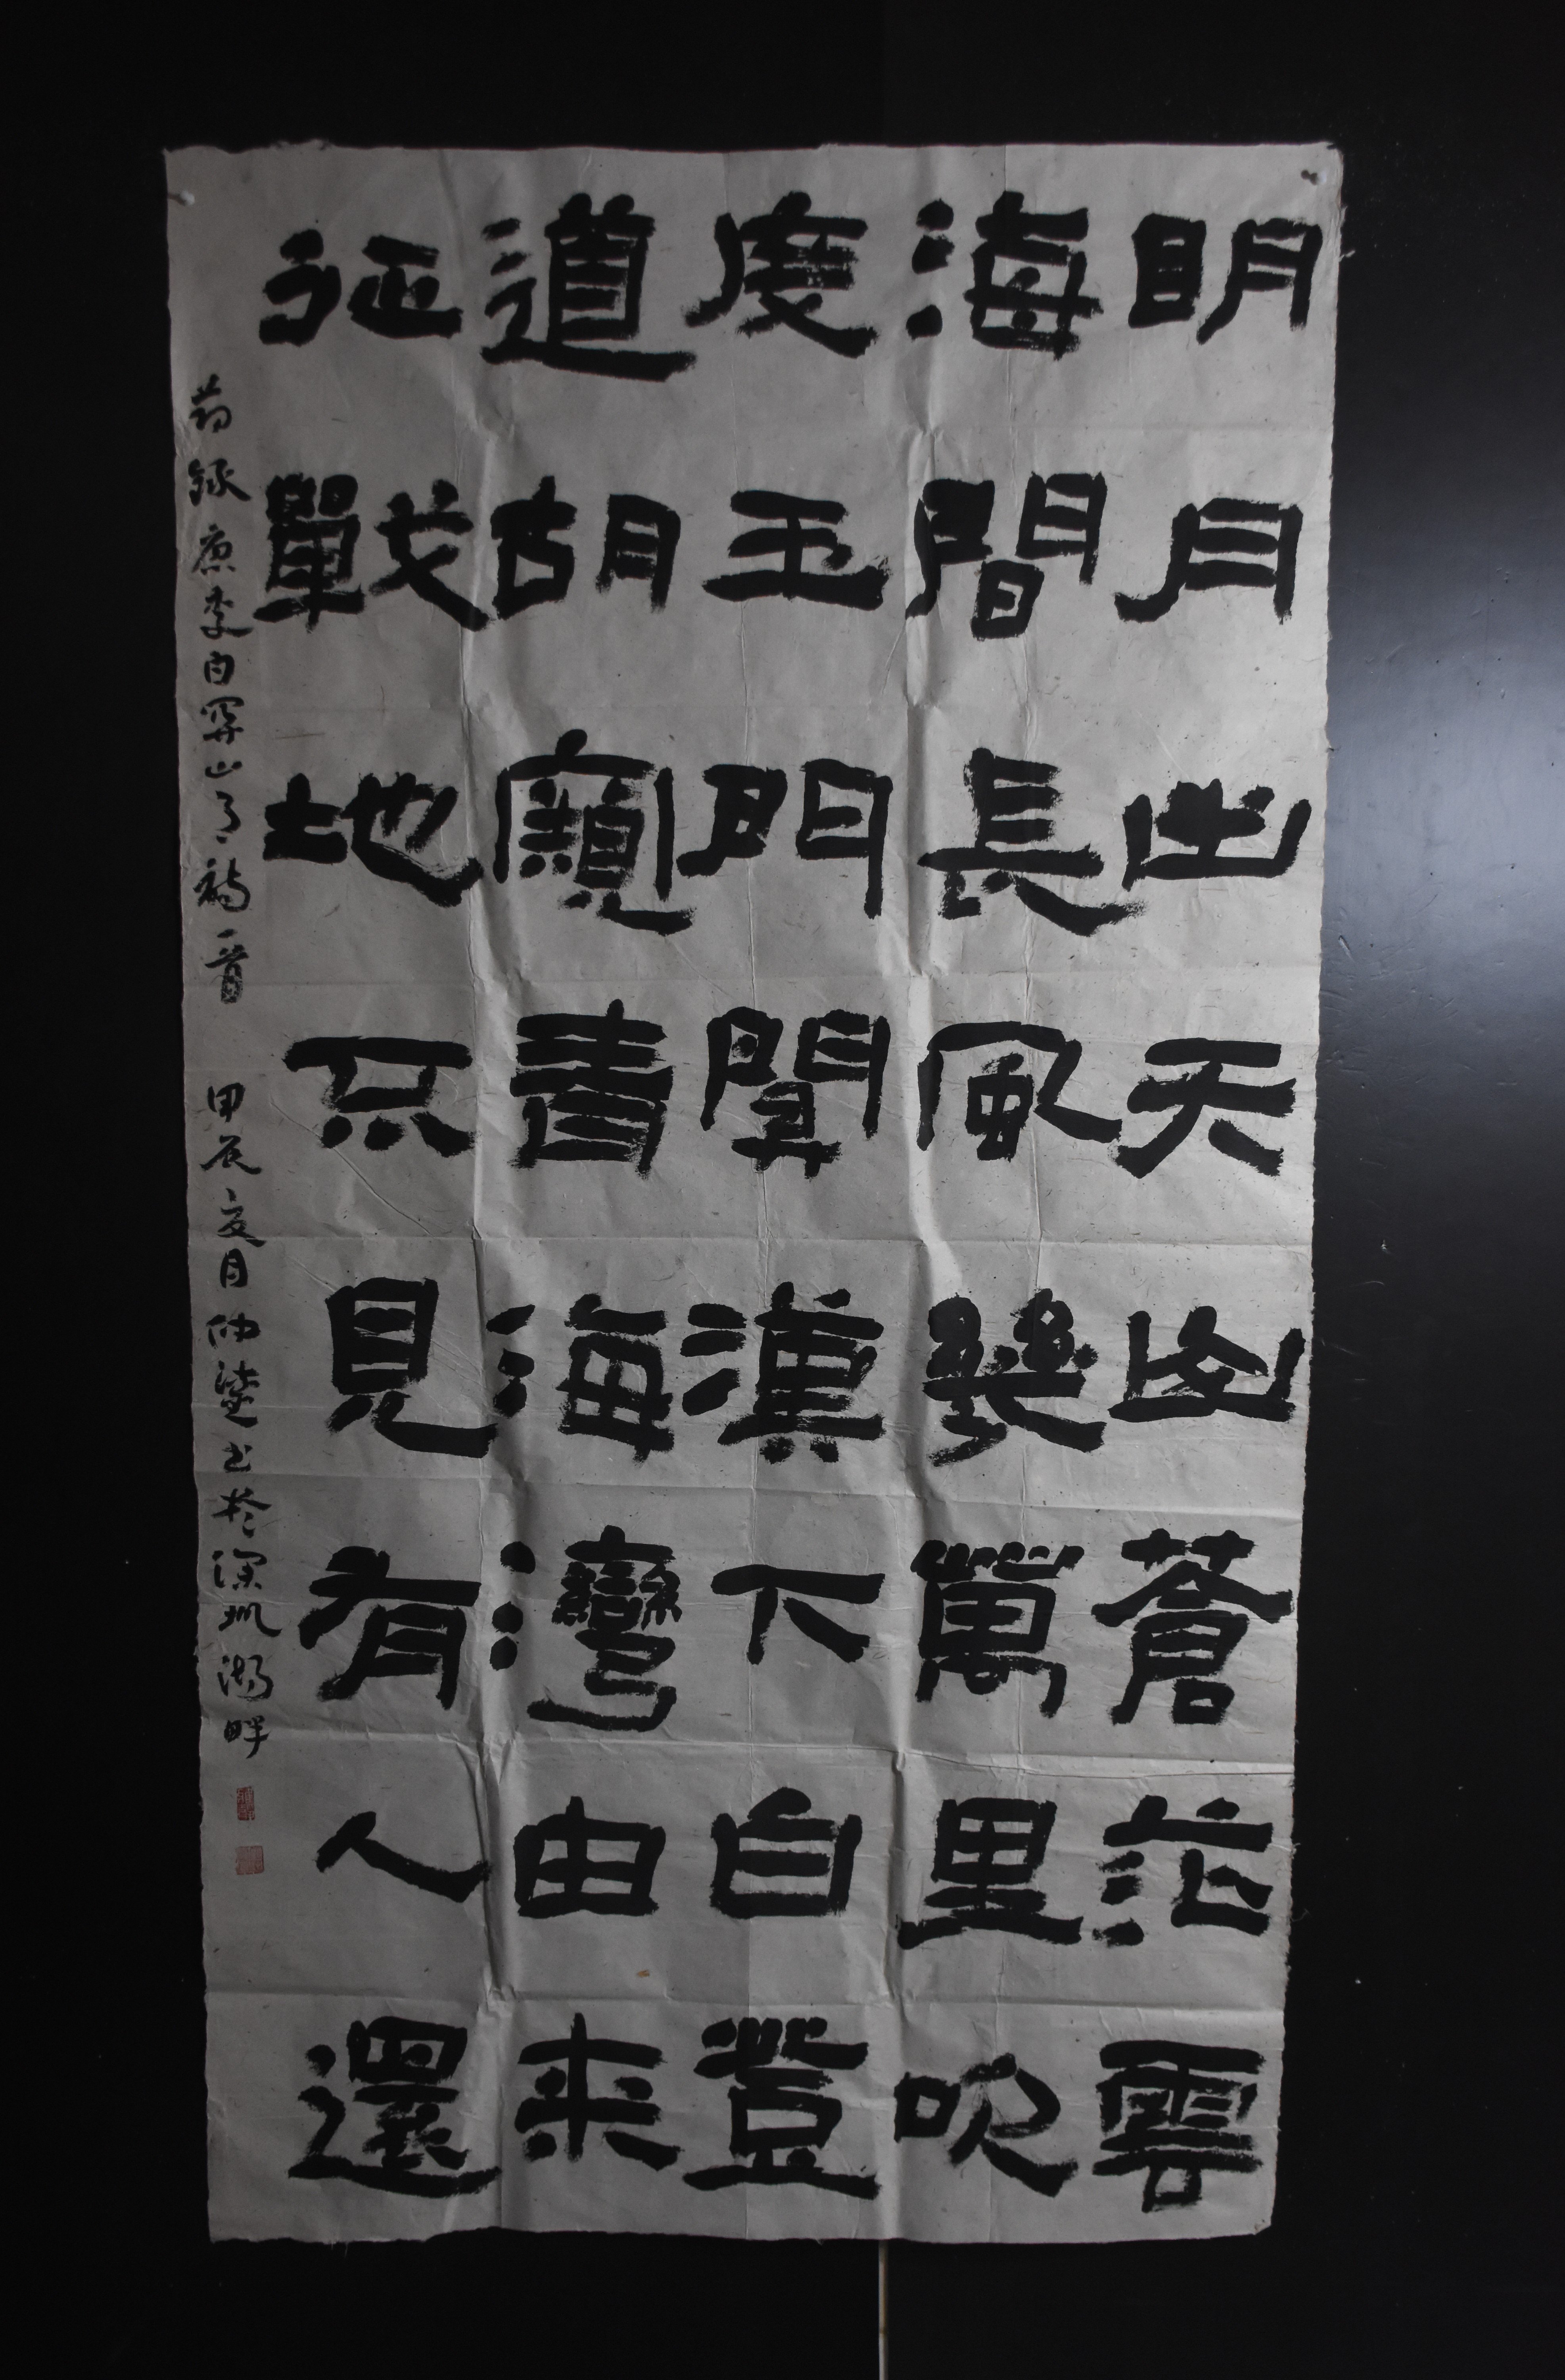 明月出天山蒼茫雲
海間長風幾萬里吹
度玉門關漢下白登
道胡窺青海灣由来
征戰地不見有人還
節録唐李白關山月詩一首 甲辰夏月仲書於深圳湖畔